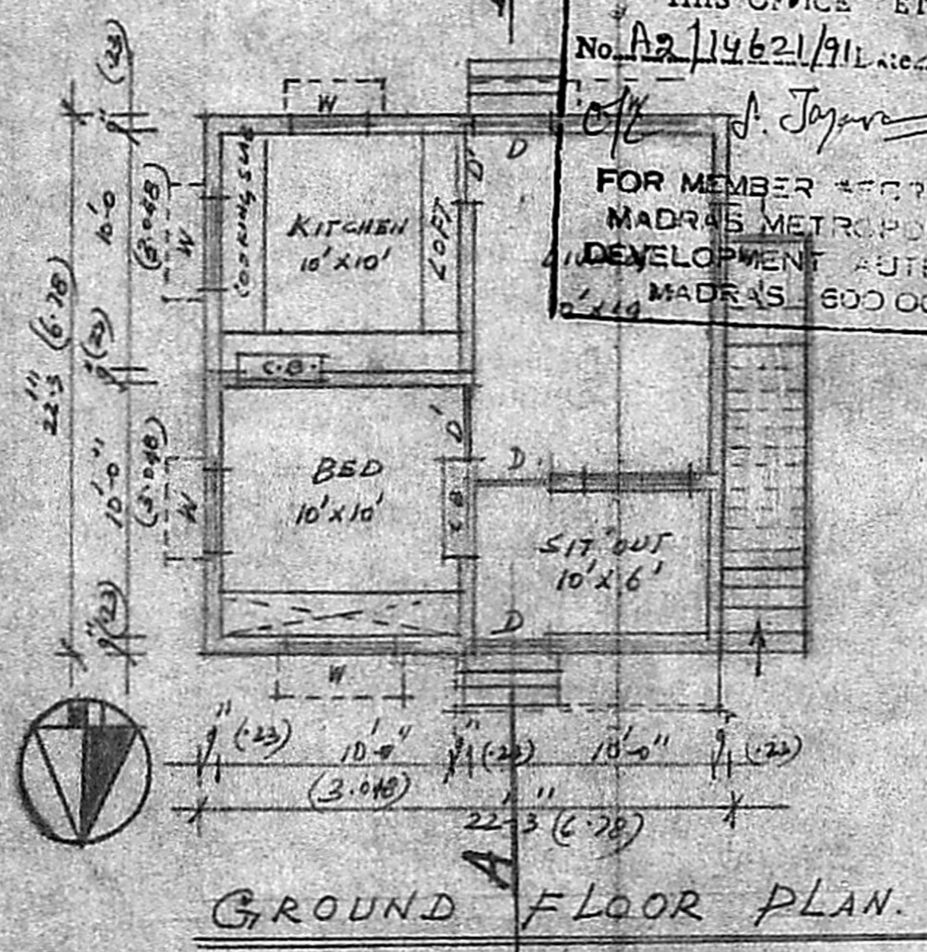 THIS OFFICE
No. A2/14621/91
FOR MEMBER
MADRAS METROPO
DEVELOPMENT AUT
MADRAS 600 00
W
D
D'
COOKING SLAB
KITCHEN
10'X10'
LOFT
W
C.B.
D'
BED
10'X10'
D.
C.B.
W
SIT OUT
10'X6'
D
W
9" (23)
10'-0
(3.048)
9" (23)
22'-3" (6.78)
10'-0"
(3.048)
9" (23)
9" (.23)
10'-0"
(3.048)
9" (.23)
10'-0"
9" (.23)
22'-3" (6.78)
A
GROUND FLOOR PLAN.